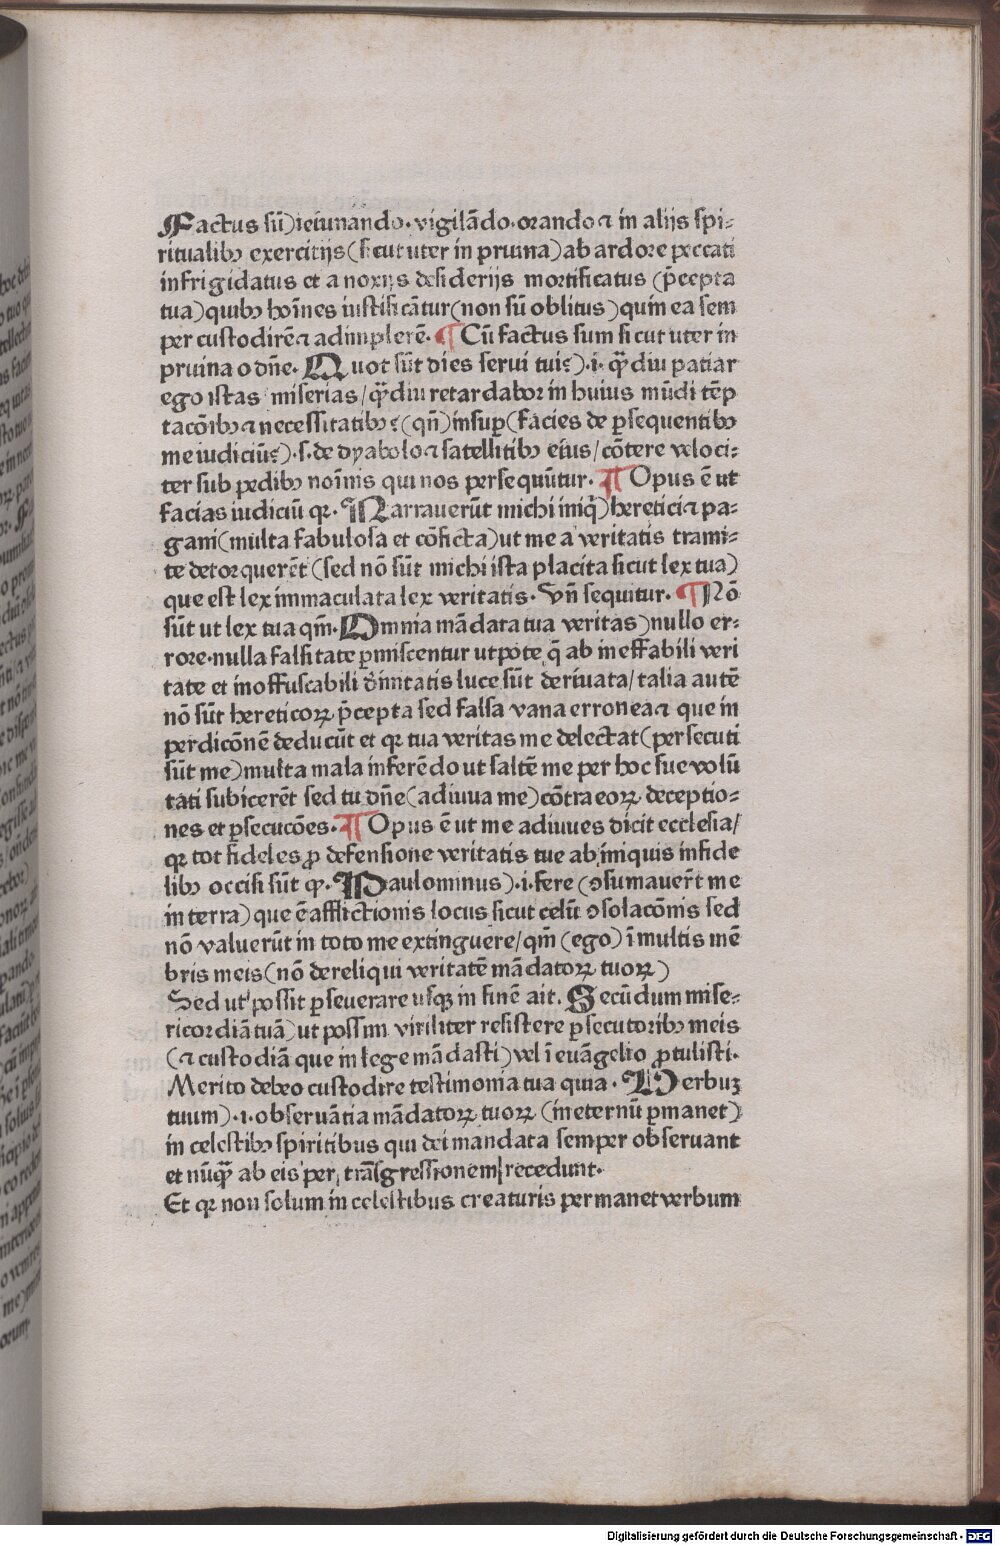 Factus sū)ieiunando·vigilādo·orandoꝛ in alijs spi⸗
ritualibꝰ exercitijs(sicut uter in pruina)ab ardore peccati
infrigidatus et a noxijs desiderijs mortificatus (p̄cepta
tua)quibꝰ hoīnes iustificātur(non sū oblitus)quin ea sem
per custodirēꝛ adimplerē·¶Cū factus sum sicut uter in
pruina o dn̄e·Quot sūt dies servi tui?)·i·qͣ̄diu patiar
ego istas miserias/qͣ̄diu retardabor in huius mūdi tēp
tacōibꝰꝛ necessitatibꝰ?(qn̄)insup̱(facies de ꝑsequentibꝰ
me iudiciū?)·s·de dyaboloꝛ satellitibꝰ eius/cōtere veloci⸗
ter sub pedibꝰ noīnis qui nos persequūtur·¶Opus ē ut
facias iudiciū qꝛ·Narrauerūt michi iniqͥ)hereticiꝛ pa⸗
gani(multa fabulosa et cōficta)ut me a veritatis trami⸗
te detorquerēt(sed nō sūt michi ista placita sicut lex tua)
que est lex immaculata lex veritatis·Vn̄ sequitur·¶Nō
sūt ut lex tua qm̄·Omnia mādata tua veritas)nullo er⸗
rore·nulla falsitate ꝑmiscentur utpote q̄ ab ineffabili veri
tate et inoffuscabili diuītatis luce sūt deriuata/talia autē
nō sūt hereticoꝝ p̄cepta sed falsa vana erroneaꝛ que in
perdicōnē deducūt et qꝛ tua veritas me delectat(persecuti
sūt me)multa mala inferēdo ut saltē me per hoc sue volū
tati subicerēt sed tu dn̄e(adiuua me)cōtra eoꝝ deceptio⸗
nes et ꝑsecucōes·¶Opus ē ut me adiuues dicit ecclesia/
qꝛ tot fideles ꝓ defensione veritatis tue ab iniquis infide
libꝰ occisi sūt qꝛ·Paulominus)·i·fere (ꝯsumauer̄t me
in terra)que ē afflictionis locus sicut celū ꝯsolacōnis sed
nō valuerūt in toto me extinguere/qm̄ (ego)ī multis mē
bris meis(nō dereliqui veritatē mādatoꝝ tuoꝝ)
Sed ut possit ꝑseuerare usqꝫ in finē ait·Secūdum mise⸗
ricordiā tuā)ut possim viriliter resistere ꝑsecutoribꝰ meis
(ꝛ custodiā que in lege mādasti)vel ī euāgelio ꝓtulisti·
Merito debeo custodire testimonia tua quia·Verbuꝫ
tuum)·i·obseruātia mādatoꝝ tuoꝝ (in eternū ꝑmanet)
in celestibꝰ spiritibus qui dei mandata semper obseruant
et nūqͣ̄ ab eis per trāsgressionem recedunt·
Et qꝛ non solum in celestibus creaturis permanet verbum
Digitalisierung gefördert durch die Deutsche Forschungsgemeinschaft - DFG